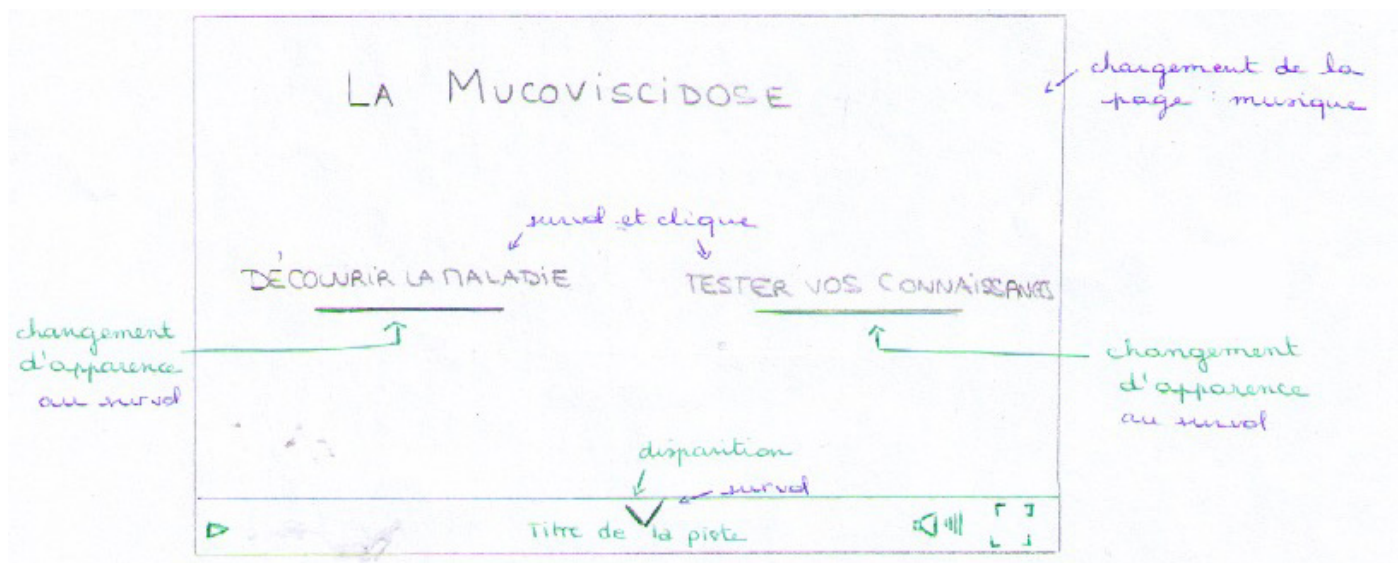 LA MUCOVISCIDOSE
chargement de la
page : musique
survol et clique
DÉCOUVRIR LA MALADIE
TESTER VOS CONNAISSANCES
changement
d'apparence
au survol
changement
d'apparence
au survol
disparition
survol
Titre de la piste